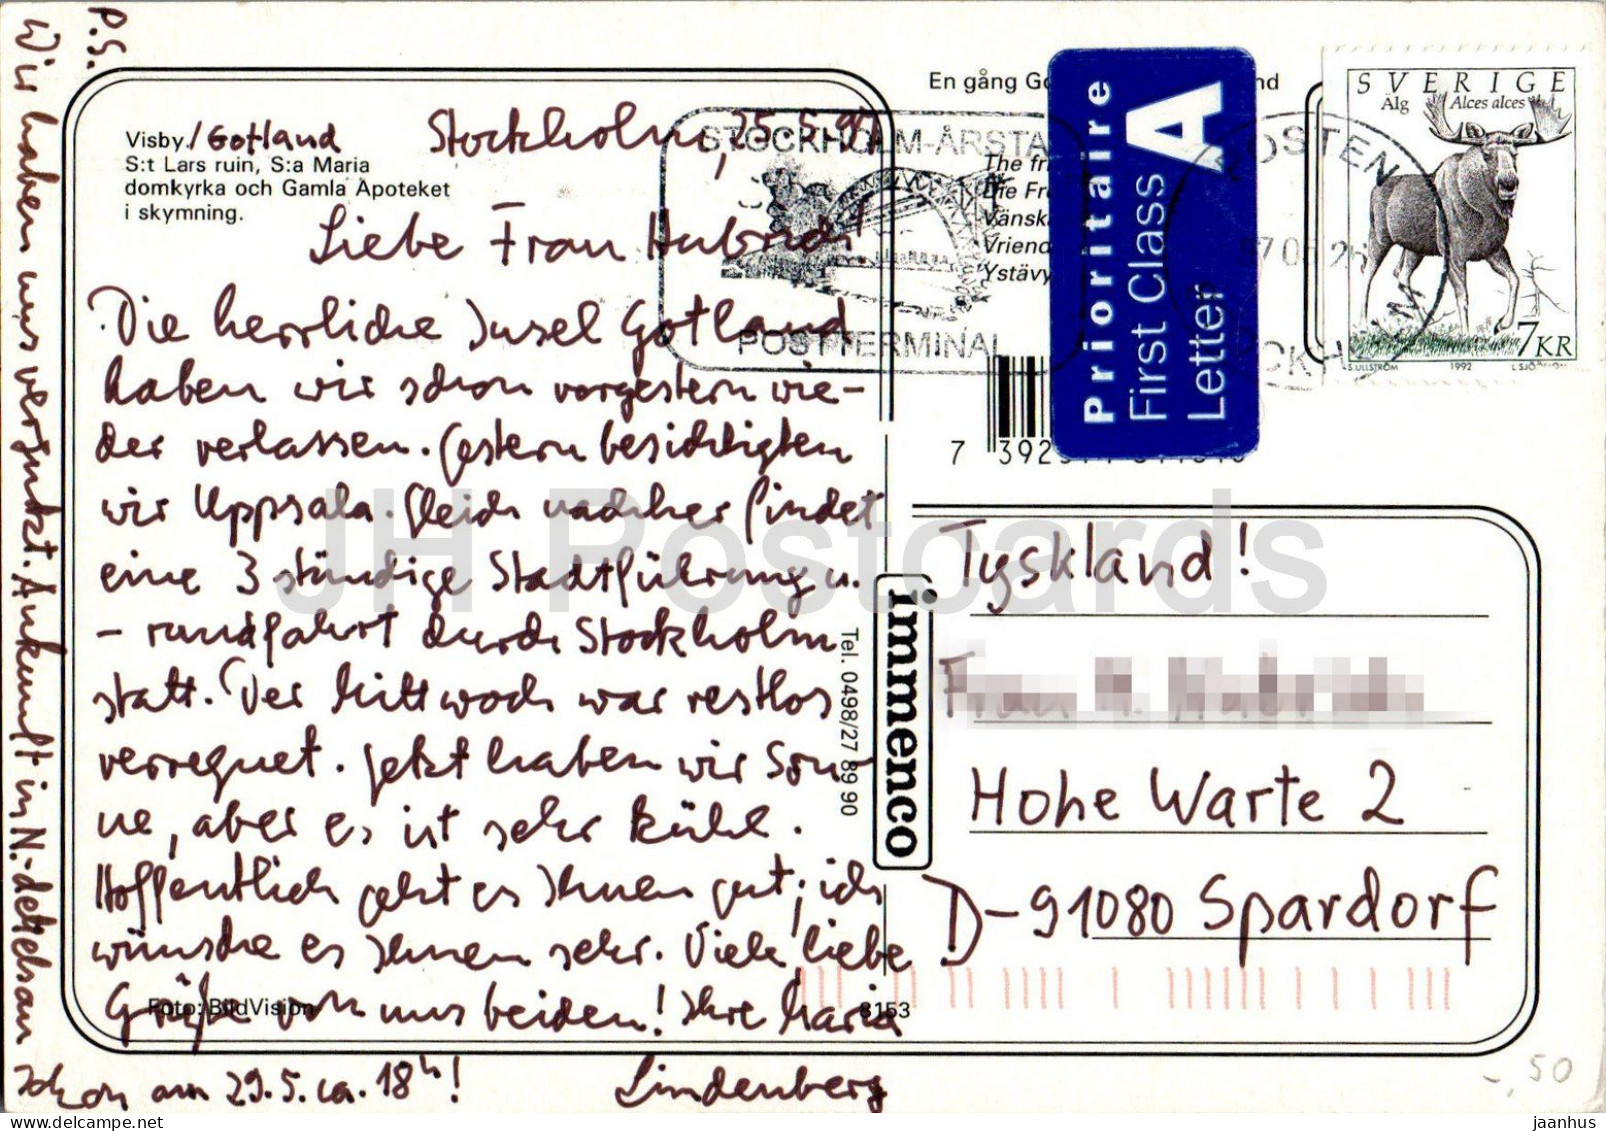 P.S.
Wir haben uns verguckt. Ankunft in N.-dettelsau
schon am 29.5. ca. 18 h!
En gång Go
nd
Visby/Gotland
S:t Lars ruin, S:a Maria
domkyrka och Gamla Apoteket
i skymning.
Stockholm, 25.5.97
Liebe Frau Hubrich!
Die herrliche Insel Gotland
haben wir schon vorgestern wie-
der verlassen. Gestern besichtigten
wir Uppsala. Gleich nachher findet
eine 3 stündige Stadtführung u.
- rundfahrt durch Stockholm
statt. Der Mittwoch war restlos
verregnet. Jetzt haben wir Son-
ne, aber es ist sehr kühl.
Hoffentlich geht es Ihnen gut; ich
wünsche es Ihnen sehr. Viele liebe
Grüße von uns beiden! Ihre Maria
Lindenberg
Foto: BildVision
8153
STOCKHOLM-ÅRSTA
POSTTERMINAL
The fr
Die Fr
Vänsk
Vriend
Ystävy
Prioritaire
First Class
Letter
A
POSTEN
STOCKHOLM
SVERIGE
Älg Alces alces
7 KR
S. ULLSTRÖM 1992 L SJÖ
7 392
immenco
Tel. 0498/27 89 90
Tyskland!
Frau
Hohe Warte 2
D-91080 Spardorf
-,50
JH Postcards
jaanhus